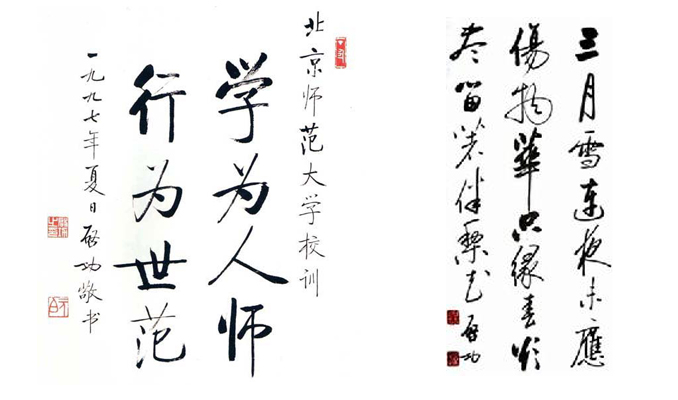 北京师范大学校训
学为人师
行为世范
一九九七年夏日启功敬书
三月雪連夜未應
傷物華只緣春欲
尽留著伴梨花 启功